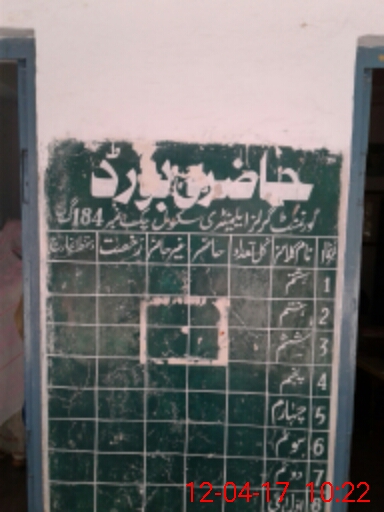 حاضری بورڈ
گورنمنٹ گرلز ایلیمنٹری سکول چک نمبر 184 گ ب
نمبر نام کلاسز کل تعداد حاضر غیر حاضر رخصت دستخط انچارج
1 ہشتم
2 ہفتم
3 ششم
4 پنجم
5 چہارم
6 سوئم
7 دوئم
8
12-04-17 10:22